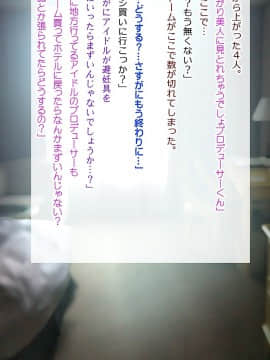 から上がった4人。
がり美人に見とれちゃうでしょプロデューサーくん」
ここで…
?もう無くない?」
ームがここで数が切れてしまった。
どうする?…さすがにもう終わりに…」
シ買いに行こっか?」
がにアイドルが避妊具を
にいったらまずいんじゃないでしょうか…?」
に地方行ってるアイドルのプロデューサーも
ーム買ってホテルに戻ったらなんかまずいんじゃない?
とか張られてたらどうするの?」